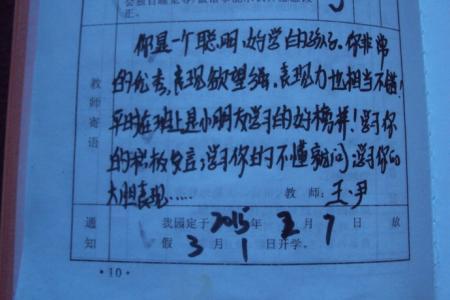 正。
教师寄语
你是一个聪明、好学的孩子。你非常
的优秀，表现欲望强，表现力也相当不错！
平时在班上是小朋友学习的好榜样！学习你
的积极发言；学习你的不懂就问；学习你的
大胆表现……
教 师：王、尹
通知
我园定于2015年2月7日放
假 3月1日开学。
·10·